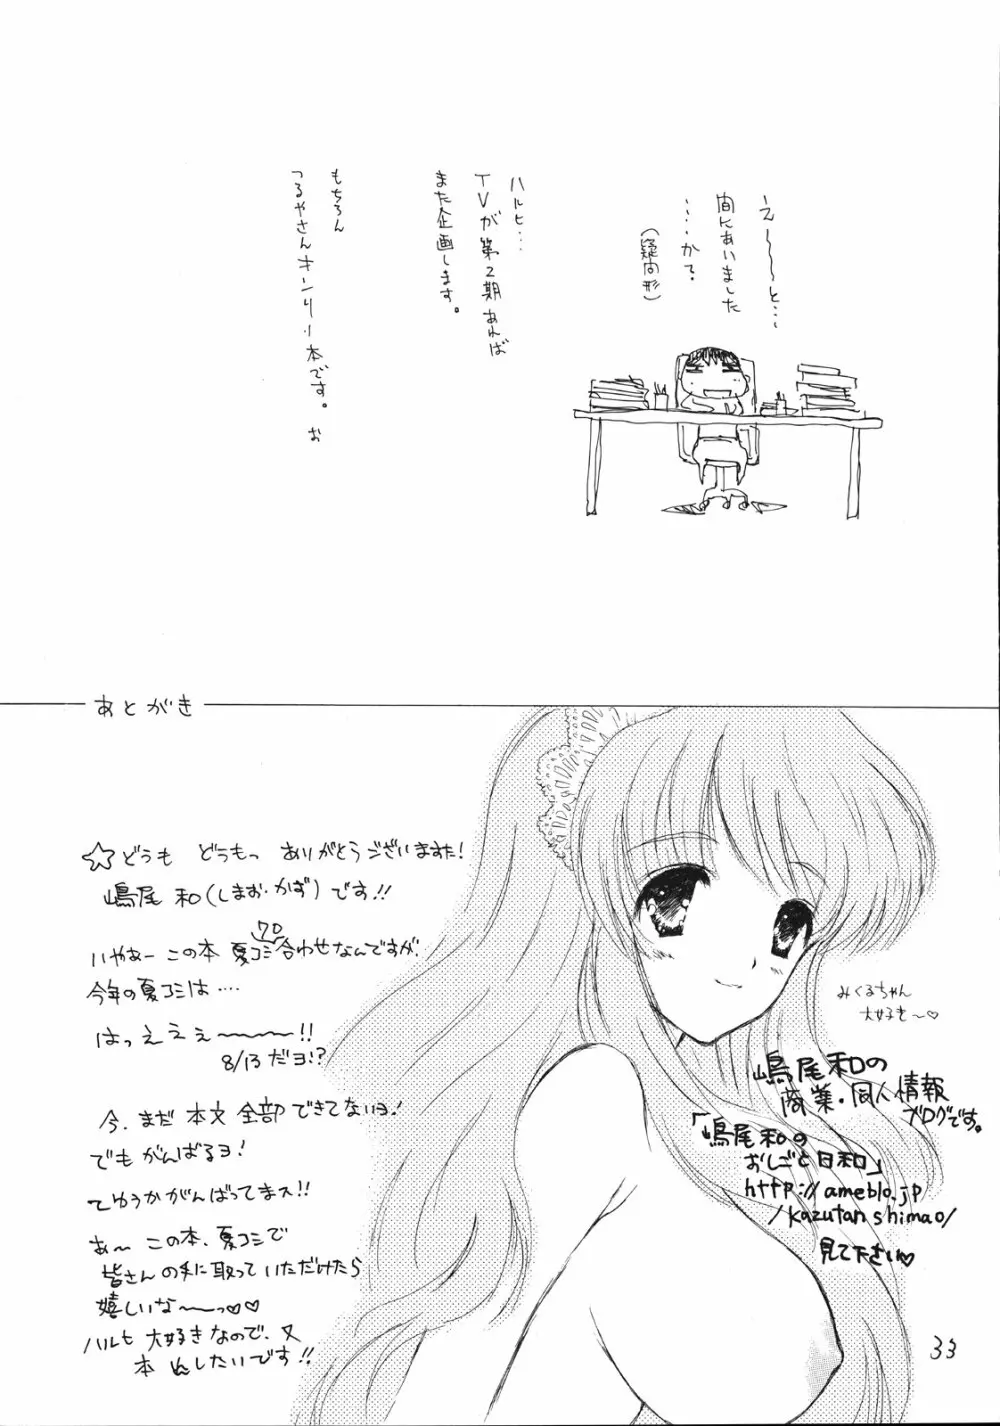 えーーーと…
間にあいました
……かな?
(疑問形)
ハルヒ…
TVが第2期あれば
また企画します。
もちろん
つるやさんオンリー本です。 お
あとがき
☆どうも どうもっ ありがとうございますた!
嶋尾 和(しまお・かず)です!!
いやぁー この本 夏コミ合わせなんですが、
今年の夏コミは‥‥
はっえええ~~~~!!
8/13だヨ!?
今、まだ 本文 全部 できてないヨ!
でも がんばるヨ!
てゆうか がんばってまス!!
あ~ この本、夏コミで
皆さんの手に取っていただけたら
嬉しいな~~っ♡♡
ハルヒ 大好きなので、又
本 したいです!!
みくるちゃん
大好き~♡
嶋尾和の
商業・同人情報
ブログです。
「嶋尾和の
おしごと日和」
http://ameblo.jp
/kazutanshimao/
見て下さい♡
33